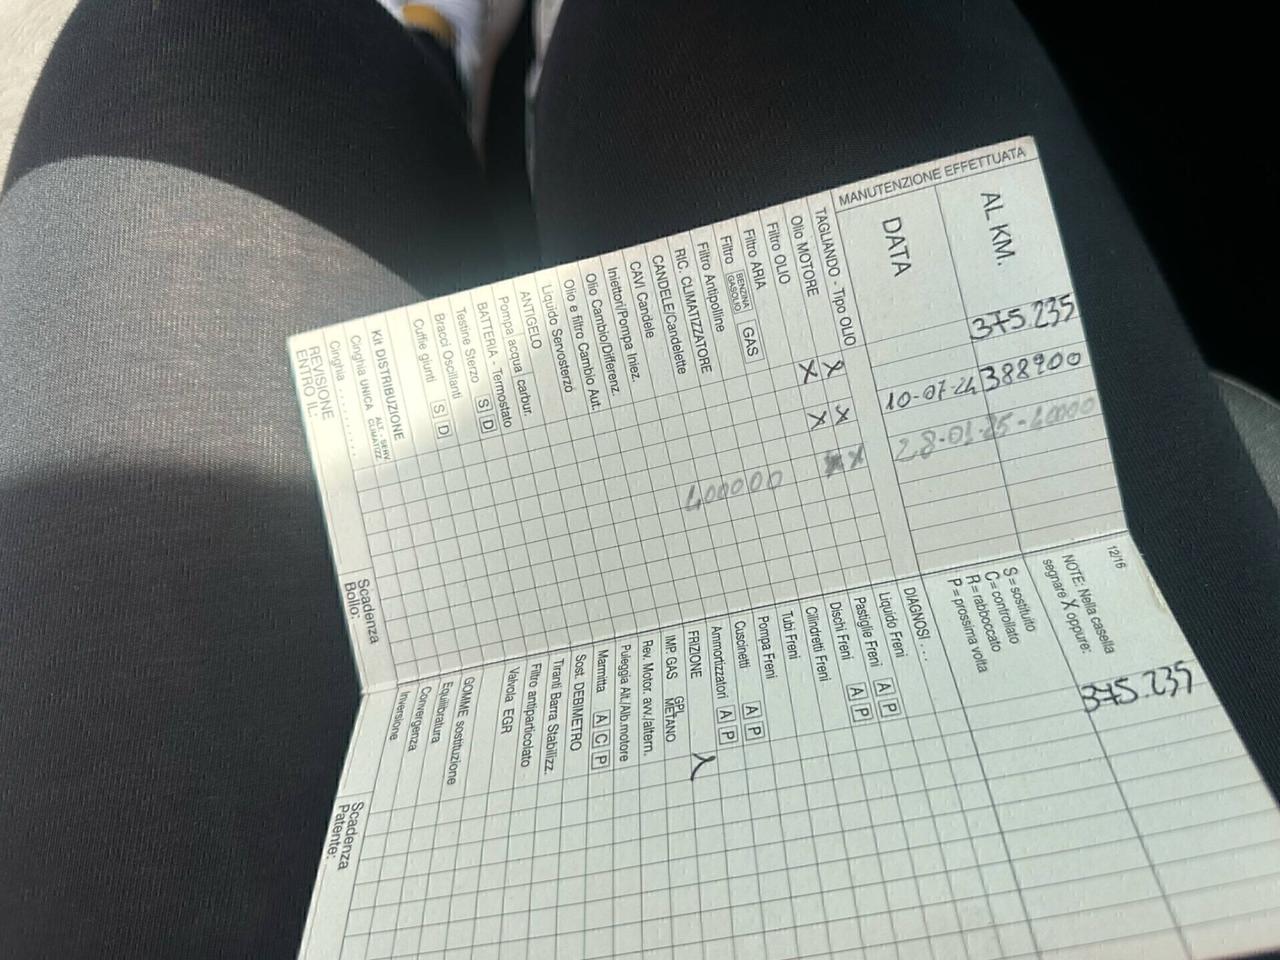 MANUTENZIONE EFFETTUATA
AL KM.
375.235
388900
DATA
10-07-24
TAGLIANDO - Tipo OLIO X X X
Olio MOTORE X X
Filtro OLIO
Filtro ARIA
Filtro BENZINA GASOLIO GAS
Filtro Antipolline
RIC. CLIMATIZZATORE
CANDELE/Candelette
CAVI Candele
Iniettori/Pompa Iniez.
Olio Cambio/Differenz.
Olio e filtro Cambio Aut.
Liquido Servosterzo
ANTIGELO
Pompa acqua carbur.
BATTERIA - Termostato
Testine Sterzo S D
Bracci Oscillanti S D
Cuffie giunti
Kit DISTRIBUZIONE
Cinghia UNICA ALT. - SERV. CLIMATIZZ.
Cinghia ..........
REVISIONE
ENTRO IL:
Scadenza
Bollo:
12/16
NOTE: Nella casella
segnare X oppure:
S = sostituito
C = controllato
R = rabboccato
P = prossima volta
375.235
DIAGNOSI ....
Liquido Freni
Pastiglie Freni A P
Dischi Freni A P
Cilindretti Freni
Tubi Freni
Pompa Freni
Cuscinetti A P
Ammortizzatori A P
FRIZIONE
IMP. GAS GPL METANO
Rev. Motor. avv./altern.
Puleggia Alt./Alb.motore
Marmitta A C P
Sost. DEBIMETRO
Tiranti Barra Stabilizz.
Filtro antiparticolato
Valvola EGR
GOMME sostituzione
Equilibratura
Convergenza
Inversione
Scadenza
Patente: